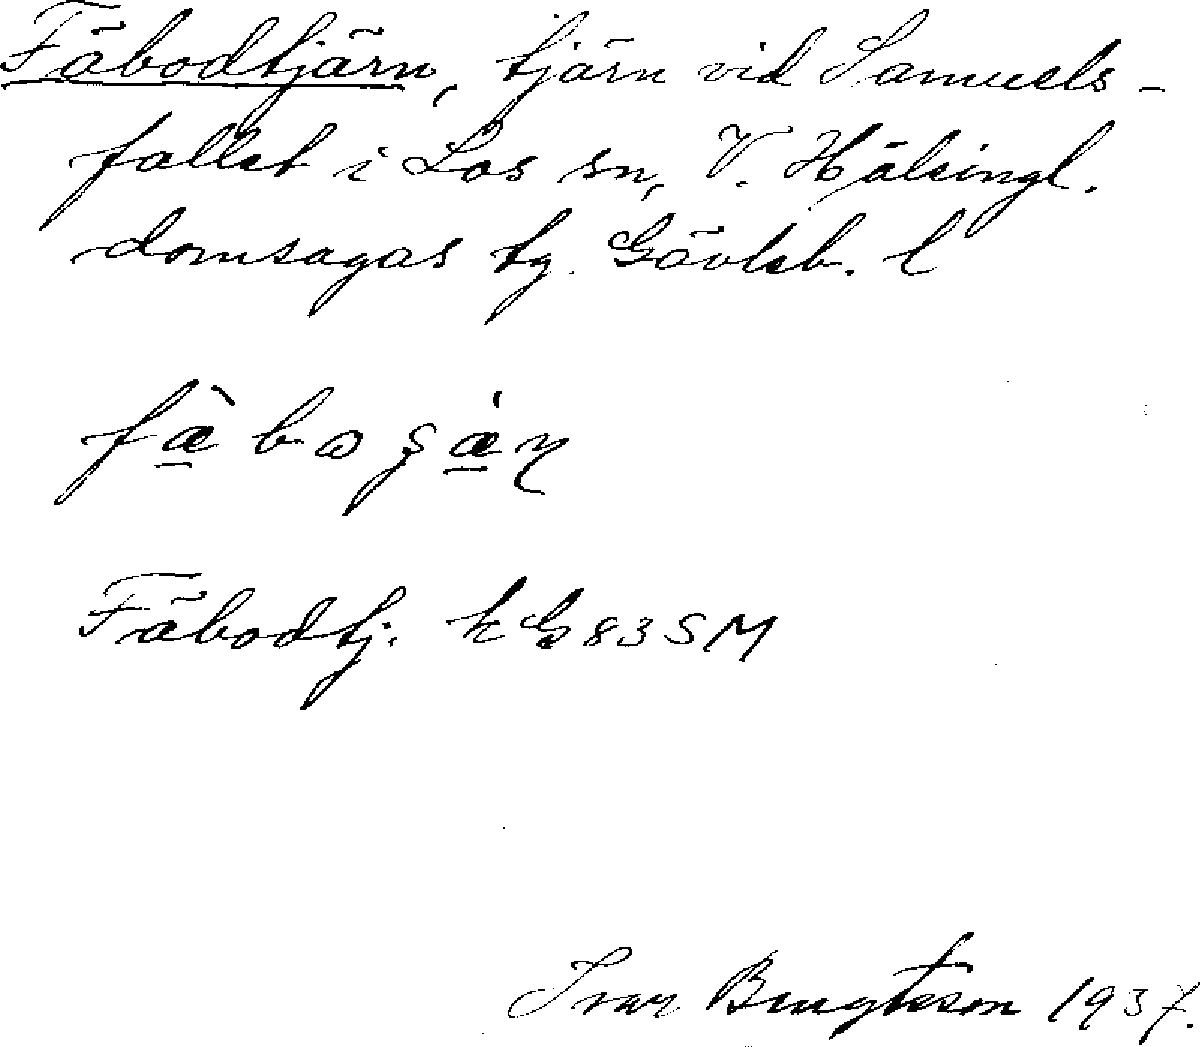 Fäbodtjärn, tjärn vid Samuels-
fallet i Los sn, V. Hälsingl.
domsagas tg. Gävleb. l
Fäbodtj. k G 83 SM
Ivar Bengtsson 1937.